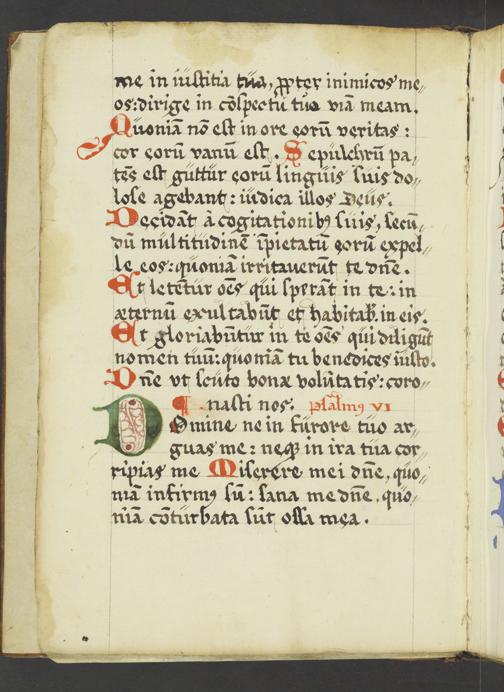 me in iustitia tua, ꝓpter inimicos me„
os: dirige in cōspectu tuo viā meam.
Quoniā nō est in ore eorū veritas :
cor eorū vanū est. Sepulchrū pa„
tēs est guttur eorū linguis suis do„
lose agebant : iudica illos Deus.
Decidāt à cogitationibꝰ suis, secū„
dū multitudinē īpietatū eorū expel„
le eos: quoniā irritaverūt te dn̄e.
Et letētur oēs qui sperāt in te: in
æternū exultabūt et habitab. in eis.
Et gloriabūtur in te oēs qui diligūt
nomen tuū: quoniā tu benedices iusto.
Dn̄e vt scuto bonæ volūtatis: coro„
¶ nasti nos. psalmꝰ VI
Domine ne in furore tuo ar„
guas me : neqꝫ in ira tua cor„
ripias me Miserere mei dn̄e, quo„
niā infirmꝰ sū : sana me dn̄e, quo„
niā cōturbata sūt ossa mea.